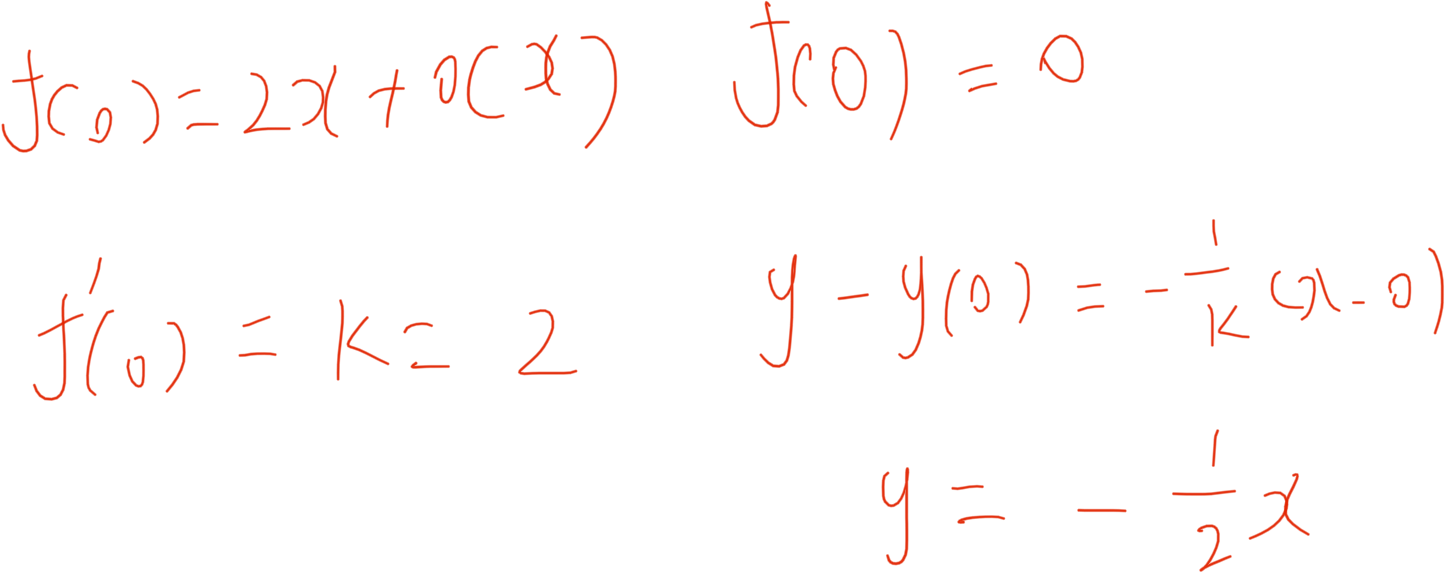 f(0) = 2x + 0(x)
f(0) = 0
f'(0) = k = 2
y - y(0) = -1/k (x - 0)
y = -1/2 x